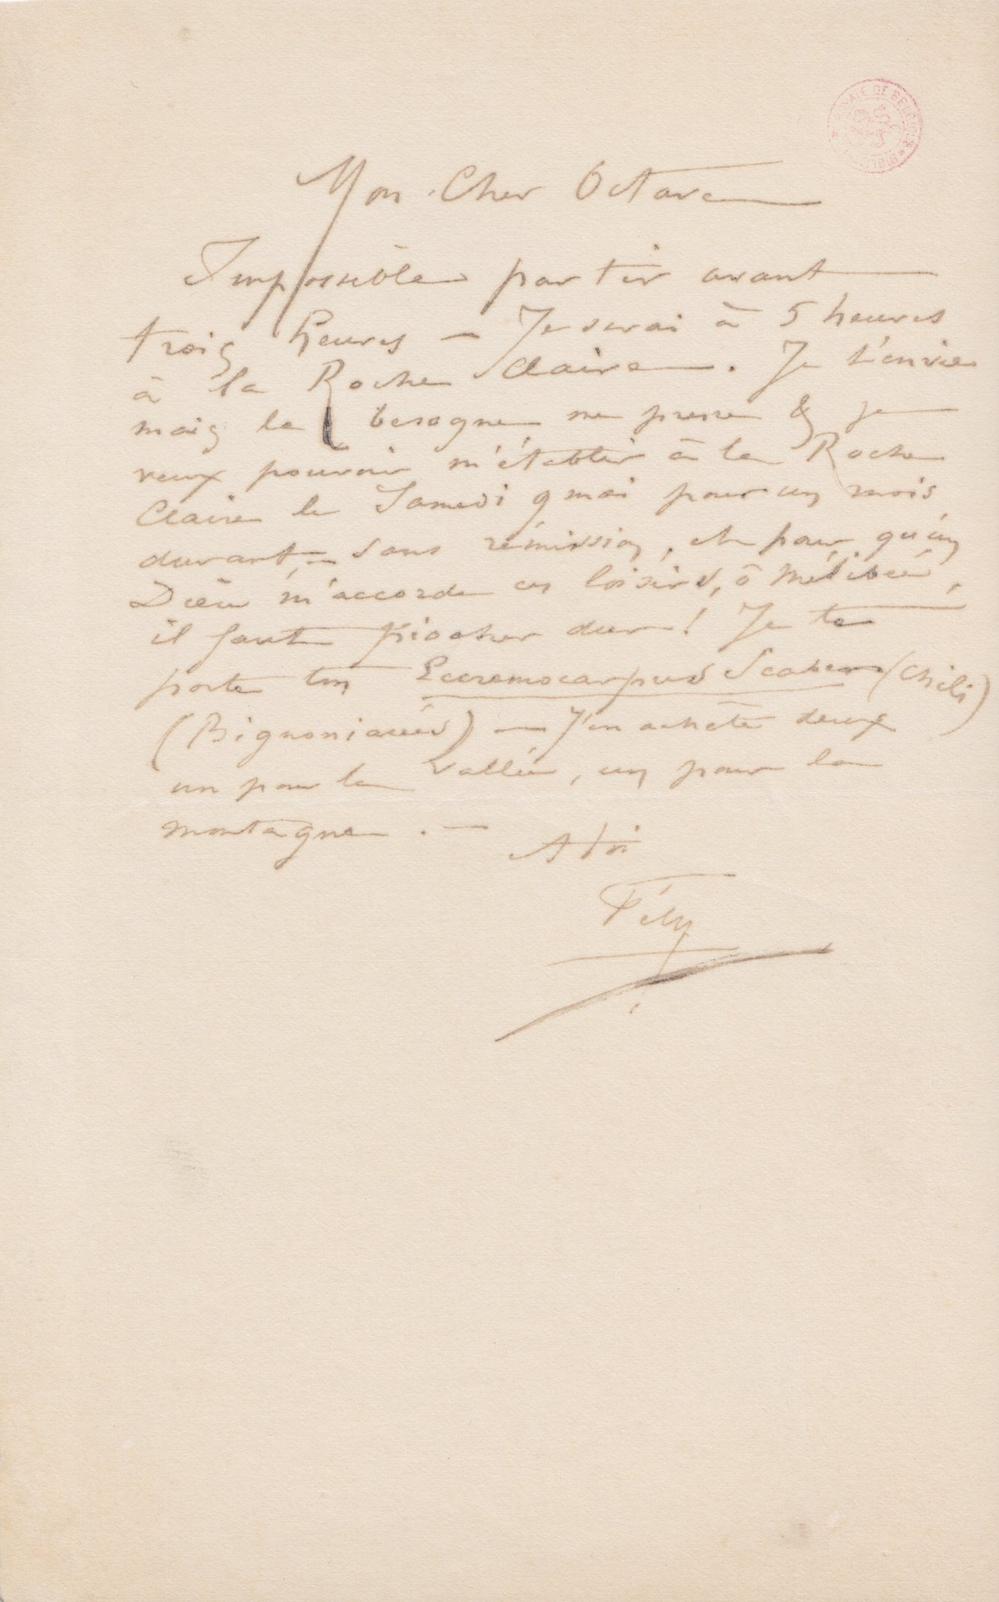 Mon Cher Octave
Impossible partir avant
trois heures — Je serai à 5 heures
à la Roche Claire. Je t'envie
mais la besogne me presse & je
veux pouvoir m'établir à la Roche
Claire le Samedi 9 mai pour un mois
durant — sans rémission, et pour qu'un
Dieu m'accorde ces loisirs, ô Mélibée,
il faut piocher dur! Je te
porte ton Eccremocarpus Scaber (Chili)
(Bignoniacées) — J'en achète deux
un pour la vallée, un pour la
montagne. —
A toi
Fély